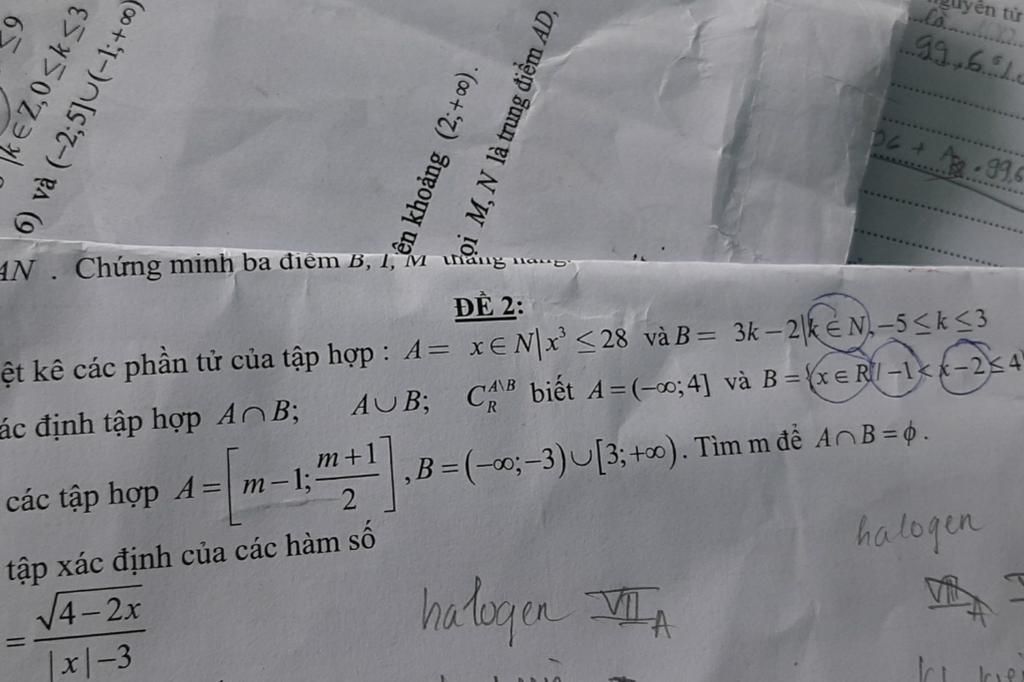 ≤9
k∈Z,0≤k≤3
6) và (−2;5]∪(−1;+∞)
ên khoảng (2;+∞).
ọi M, N là trung điểm AD,
guyên tử
99,6%
AN . Chứng minh ba điểm B, I, M thẳng hàng.
ĐỀ 2:
ệt kê các phần tử của tập hợp : A = x∈N|x³ ≤ 28 và B = 3k−2|k∈N,−5≤k≤3
ác định tập hợp A∩B; A∪B; C_R^{A\B} biết A=(−∞;4] và B={x∈R/−1<x−2≤4
các tập hợp A=[m−1;(m+1)/2],B=(−∞;−3)∪[3;+∞). Tìm m để A∩B=ϕ.
tập xác định của các hàm số
halogen
= √(4−2x) / (|x|−3)
halogen VII_A
VIII_A